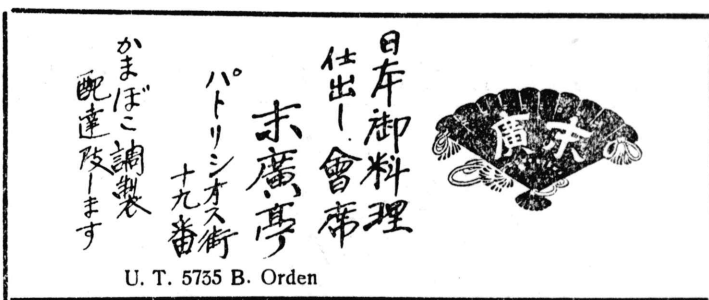 末廣
日本御料理
仕出し.會席
末廣亭
パトリシオス街
十九番
かまぼこ調製
配達致します
U. T. 5735 B. Orden